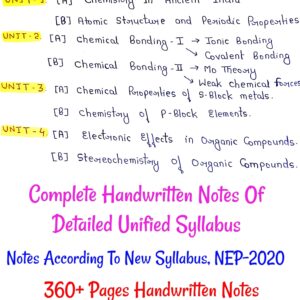 UNIT-1. [A] Chemistry in Ancient India
[B] Atomic Structure and Periodic Properties
UNIT-2. [A] Chemical Bonding-I → Ionic Bonding
↘ Covalent Bonding
[B] Chemical Bonding-II → Mo Theory
↘ Weak chemical forces
UNIT-3 [A] Chemical Properties of S-Block metals.
[B] Chemistry of P-Block Elements.
UNIT-4 [A] Electronic Effects in Organic Compounds.
[B] Stereochemistry of Organic Compounds.
Complete Handwritten Notes Of
Detailed Unified Syllabus
Notes According To New Syllabus, NEP-2020
360+ Pages Handwritten Notes